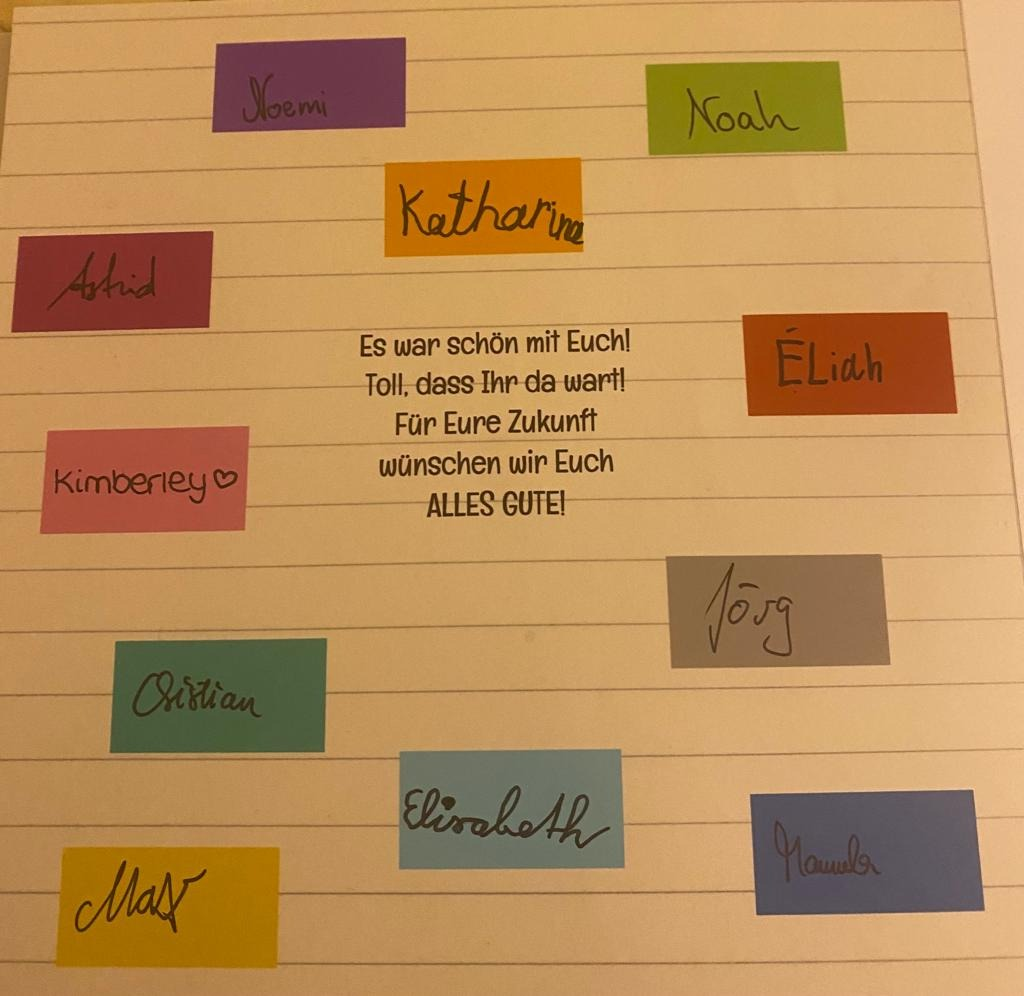 Noemi
Noah
Katharina
Astrid
Es war schön mit Euch!
Toll, dass Ihr da wart!
Für Eure Zukunft
wünschen wir Euch
ALLES GUTE!
ÉLiah
Kimberley♡
Jörg
Christian
Elisabeth
Manuela
Max